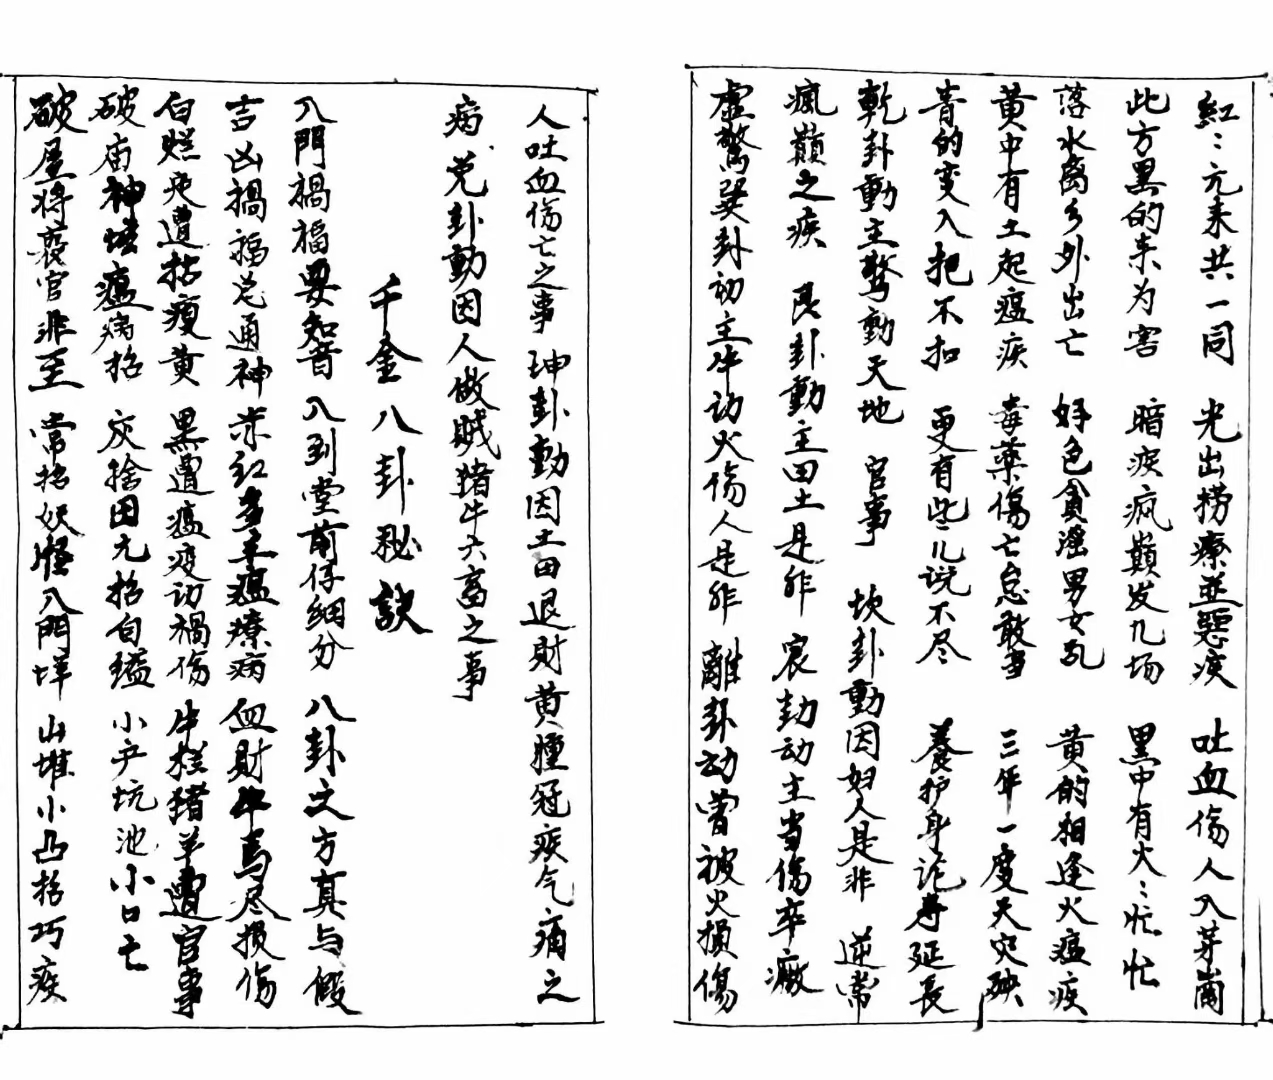 紅〻元来共一同 光出捞療並惡疾 吐血伤人入芽崗
此方黑的来为害 暗疾疯巔发几场 黑中有火〻忙忙
落水离乡外出亡 好色貪淫男女乱 黄的相逢火瘟疾
黄中有土起瘟疾 毒藥傷亡怠敢当 三年一度天灾殃
青的变入把不扣 更有些〻儿说不尽 養护身讫寿延長
乾卦動主驚動天地 官事 坎卦動因妇人是非 逆常
瘋巔之疾 艮卦動主田土是非 宸卦动主当伤卒癥
虚驚巽卦动主牛动火伤人是非 離卦动曾被火損傷
人吐血傷亡之事 坤卦動因土田退財黄腫冦疾气痛之
病 兑卦動因人做贼猪牛六畜之事
千金八卦秘訣
入門禍福要知音 入到堂前仔細分 八卦之方真与假
吉凶禍福兑通神 米红多主瘟療病 血財牛馬尽损伤
白遭拈瘦黄 黑遭瘟疫动禍伤 牛栏猪羊遭官事
破庙神壇瘟病招 灰捨因元招自缢 小产坑池小口亡
破屋将官非至 常招妖怪入門 山堆小凸招巧疾